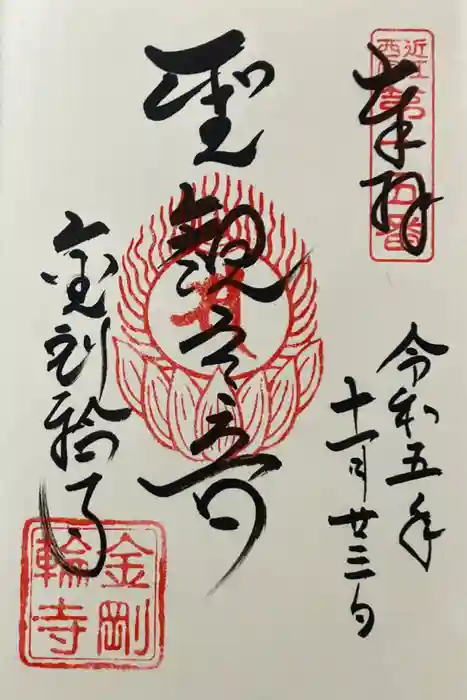 奉拝
近江西国第十五番
令和五年
十一月廿三日
聖観世音
金剛輪寺
金剛輪寺